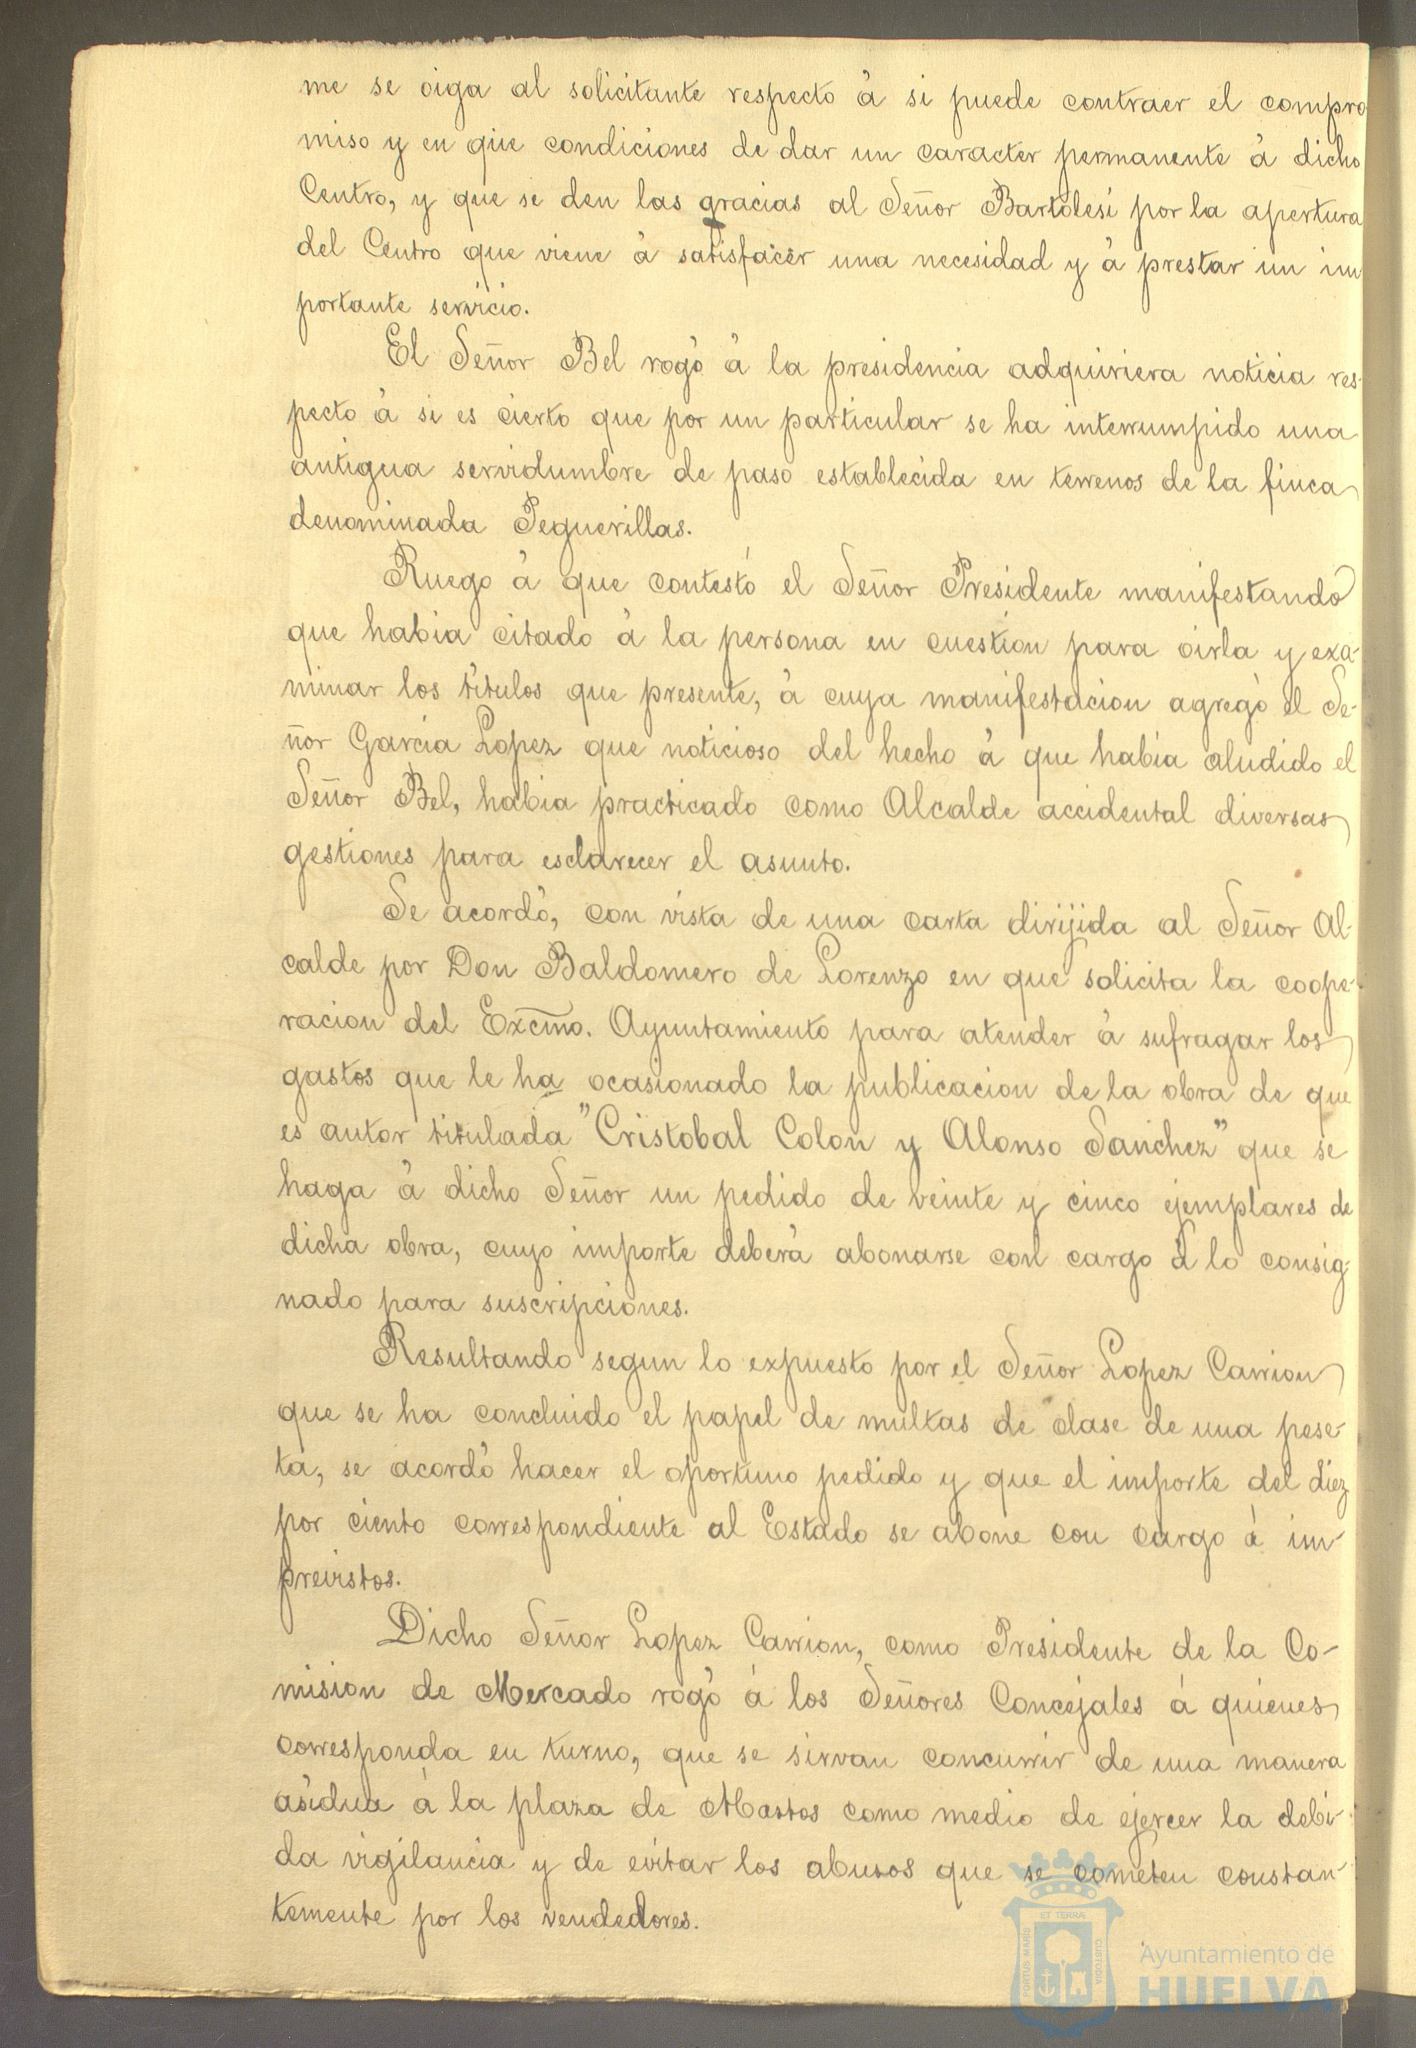 me se oiga al solicitante respecto á si puede contraer el compro
miso y en que condiciones de dar un caracter permanente á dicho
Centro, y que se den las gracias al Señor Bartolesi por la apertura
del Centro que viene á satisfacer una necesidad y á prestar un im
portante servicio.
El Señor Bel rogó á la presidencia adquiriera noticia res-
pecto á si es cierto que por un particular se ha interrumpido una
antigua servidumbre de paso establecida en terrenos de la finca
denominada Peguerillas.
Ruego á que contestó el Señor Presidente manifestando
que habia citado á la persona en cuestion para oirla y exa-
minar los títulos que presente, á cuya manifestacion agregó el Se-
ñor Garcia Lopez que noticioso del hecho á que habia aludido el
Señor Bel, habia practicado como Alcalde accidental diversas
gestiones para esclarecer el asunto.
Se acordó, con vista de una carta dirijida al Señor Al-
calde por Don Baldomero de Lorenzo en que solicita la coope-
racion del Excmo. Ayuntamiento para atender á sufragar los
gastos que le ha ocasionado la publicacion de la obra de que
es autor titulada "Cristobal Colon y Alonso Sanchez" que se
haga á dicho Señor un pedido de veinte y cinco ejemplares de
dicha obra, cuyo importe deberá abonarse con cargo á lo consig-
nado para suscripciones.
Resultando segun lo expuesto por el Señor Lopez Carrion
que se ha concluido el papel de multas de clase de una pese-
ta, se acordó hacer el oportuno pedido y que el importe del diez
por ciento correspondiente al Estado se abone con cargo á im-
previstos.
Dicho Señor Lopez Carrion, como Presidente de la Co-
mision de Mercado rogó á los Señores Concejales á quienes
corresponda en turno, que se sirvan concurrir de una manera
asidua á la plaza de Abastos como medio de ejercer la debi-
da vigilancia y de evitar los abusos que se cometen constan-
temente por los vendedores.
PORTUS MARIS
ET TERRÆ
CUSTODIA
Ayuntamiento de
HUELVA